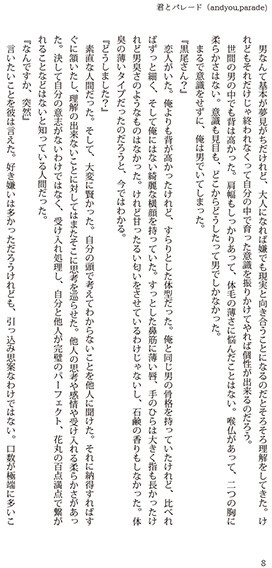 君とパレード（andyou.parade）
男なんて基本が夢見がちだけれど、大人になれば嫌でも現実と向き合うことになるのだとそろそろ理解をしてきた。け
れどもそれだけじゃ終われなくって自分の中で育った意識を振りかけてやれば個性が出来るのだろう。
世間の男の中でも背は高かった。肩幅もしっかりあって、体毛の薄さに悩んだことはない。喉仏があって、二つの胸に
柔らかさはない。意識も見目も、どこからどうしたって男でしかなかった。
まるで意識をせずに、俺は男でいてしまった。
『黒尾さん？』
恋人がいた。俺よりも背が高かったけれど、すらりとした体型だった。俺と同じ男の骨格を持っていたけれど、比べれ
ばずっと細く、そして俺にはない綺麗な横顔を持っていた。すっとした鼻筋に薄い唇、手のひらは大きく指も長かったけ
れど男臭さのようなものはなかった。けれど甘ったるい匂いをさせているわけじゃないし、石鹸の香りもしなかった。体
臭の薄いタイプだったのだろうと、今ではわかる。
『どうしました？』
素直な人間だった。そして、大変に賢かった。自分の頭で考えてわからないことを他人に聞けた。それに納得すればす
ぐに頷いたし、理解の出来ないことに対してはまたそこに思考を巡らせた。他人の思考や感情や受け入れる柔らかさがあっ
た。決して自分の意志がないわけではなく、受け入れ処理し、自分と他人が完璧のパーフェクト、花丸の百点満点で繋が
れることなどはないと知っている人間だった。
『なんですか、突然』
言いたいことを彼は言えた。好き嫌いは多かっただろうけれども、引っ込み思案なわけではない。口数が極端に多いこ
8